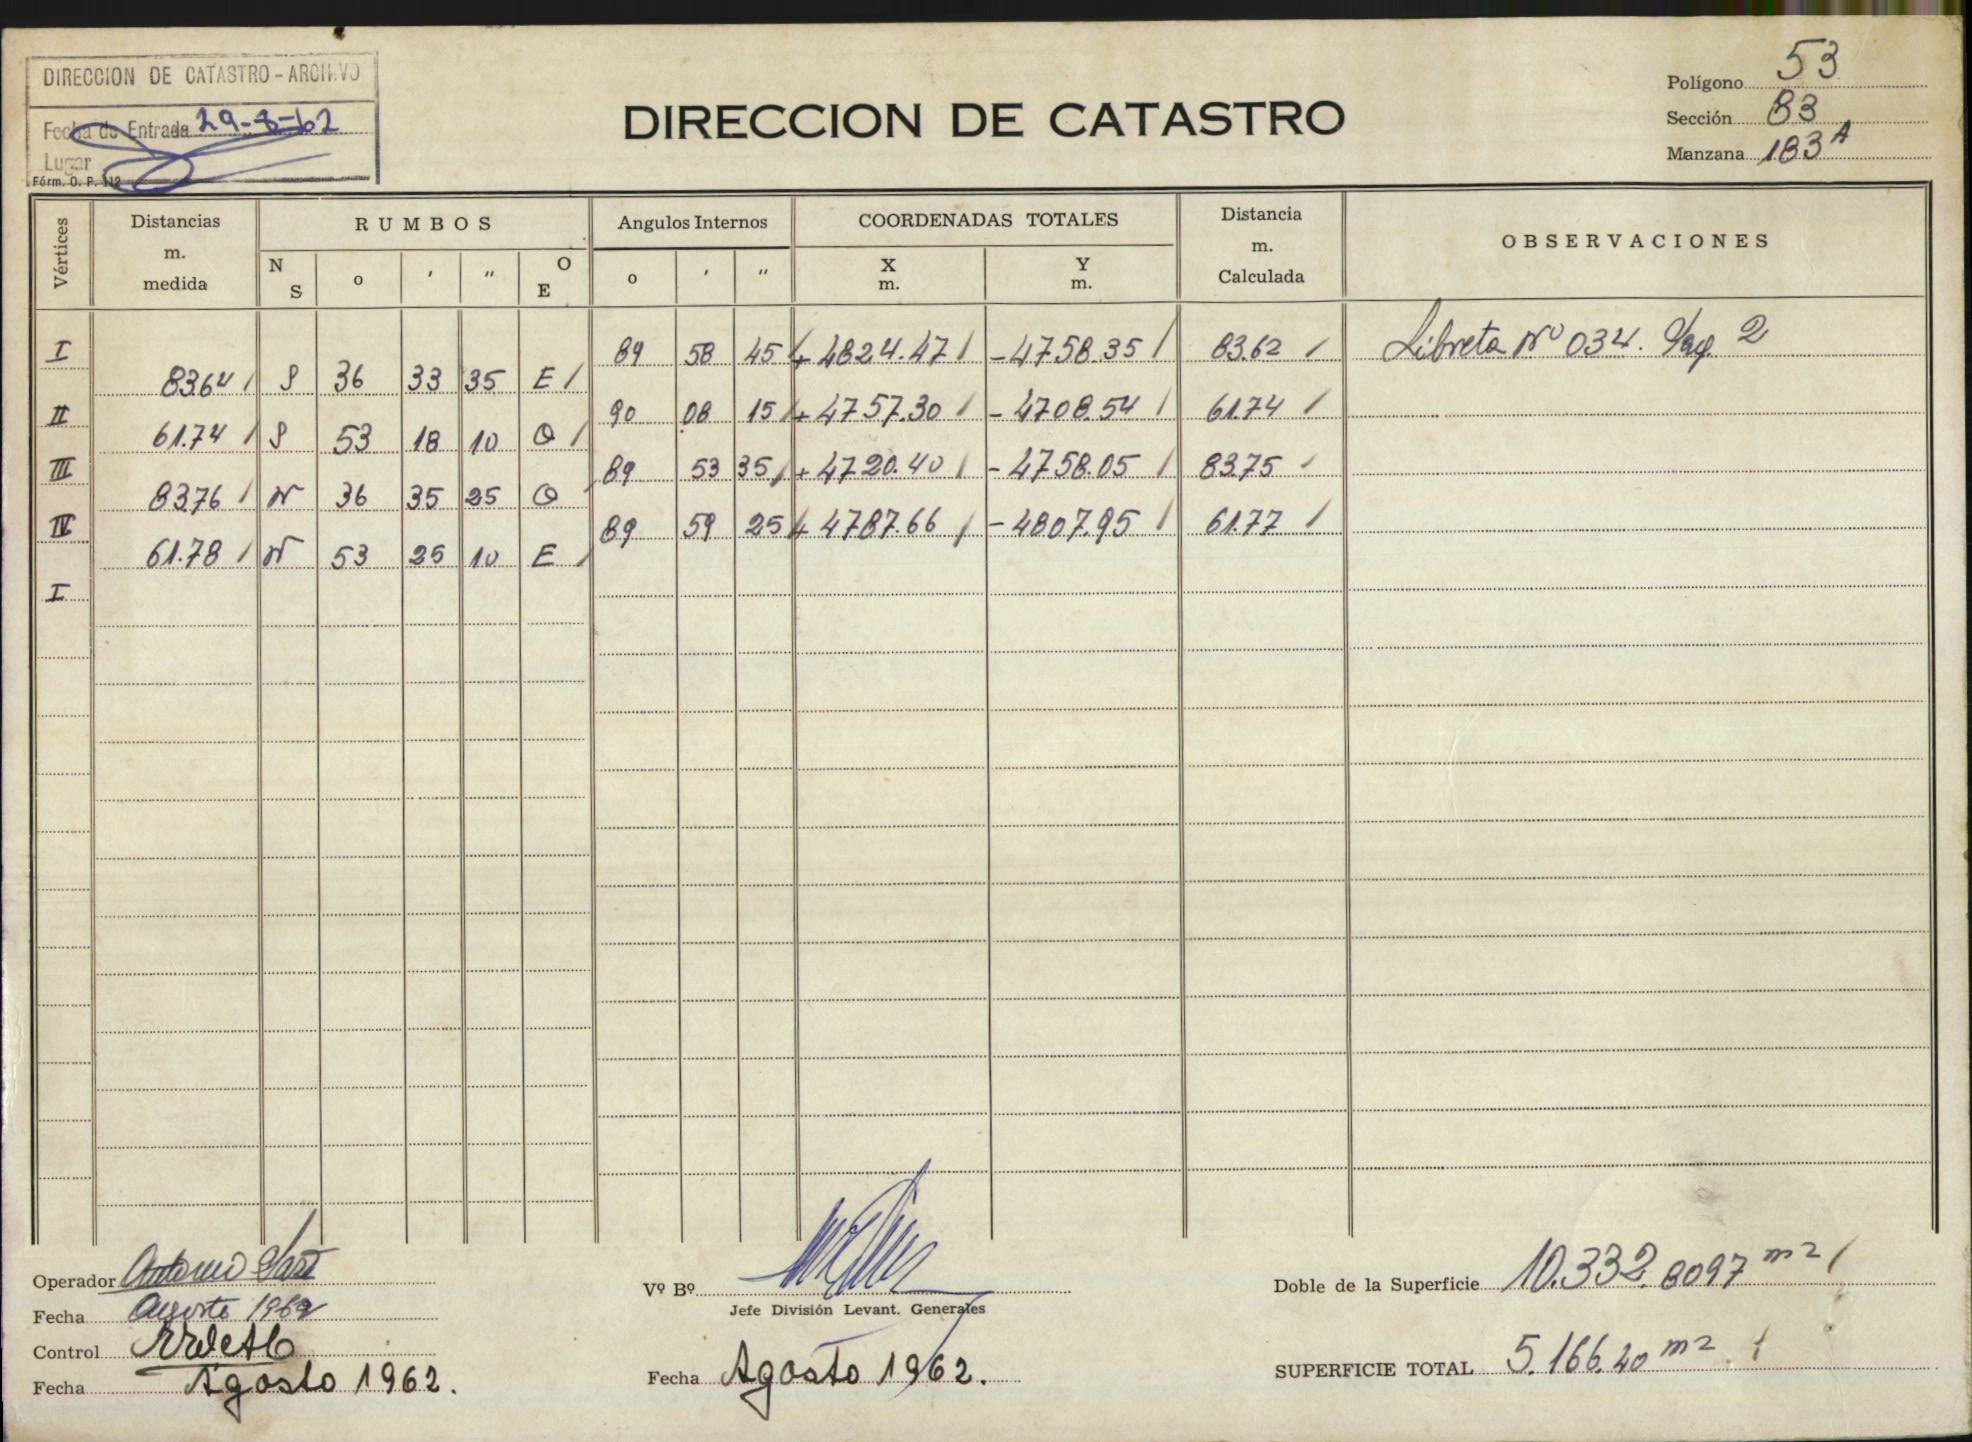 DIRECCION DE CATASTRO - ARCHIVO
Fecha de Entrada 29-8-62
Lugar
Fórm. O. P. 112
DIRECCION DE CATASTRO
Polígono 53
Sección 83
Manzana 183 A
Vértices
Distancias m. medida
RUMBOS
N S o ' " O E
Angulos Internos
o ' "
COORDENADAS TOTALES
X m. Y m.
Distancia m. Calculada
OBSERVACIONES
I 89 58 45 + 4824.47 - 4758.35 83.62 Libreta Nº 034. Pag. 2
83.64 S 36 33 35 E
II 90 08 15 + 4757.30 - 4708.54 61.74
61.74 S 53 18 10 O
III 89 53 35 + 4720.40 - 4758.05 83.75
83.76 N 36 35 25 O
IV 89 59 25 + 4787.66 - 4807.95 61.77
61.78 N 53 25 10 E
I
Operador Antonio
Fecha Agosto 1962
Control
Fecha Agosto 1962.
Vº Bº
Jefe División Levant. Generales
Fecha Agosto 1962.
Doble de la Superficie 10.332.8097 m2
SUPERFICIE TOTAL 5.166.40 m2